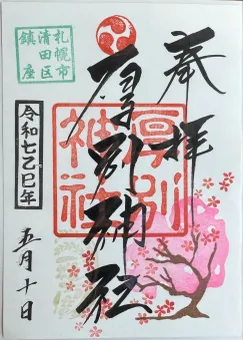 奉拝
厚別神社
厚別
神社
札幌市
清田区
鎮座
令和七乙巳年
五月十日